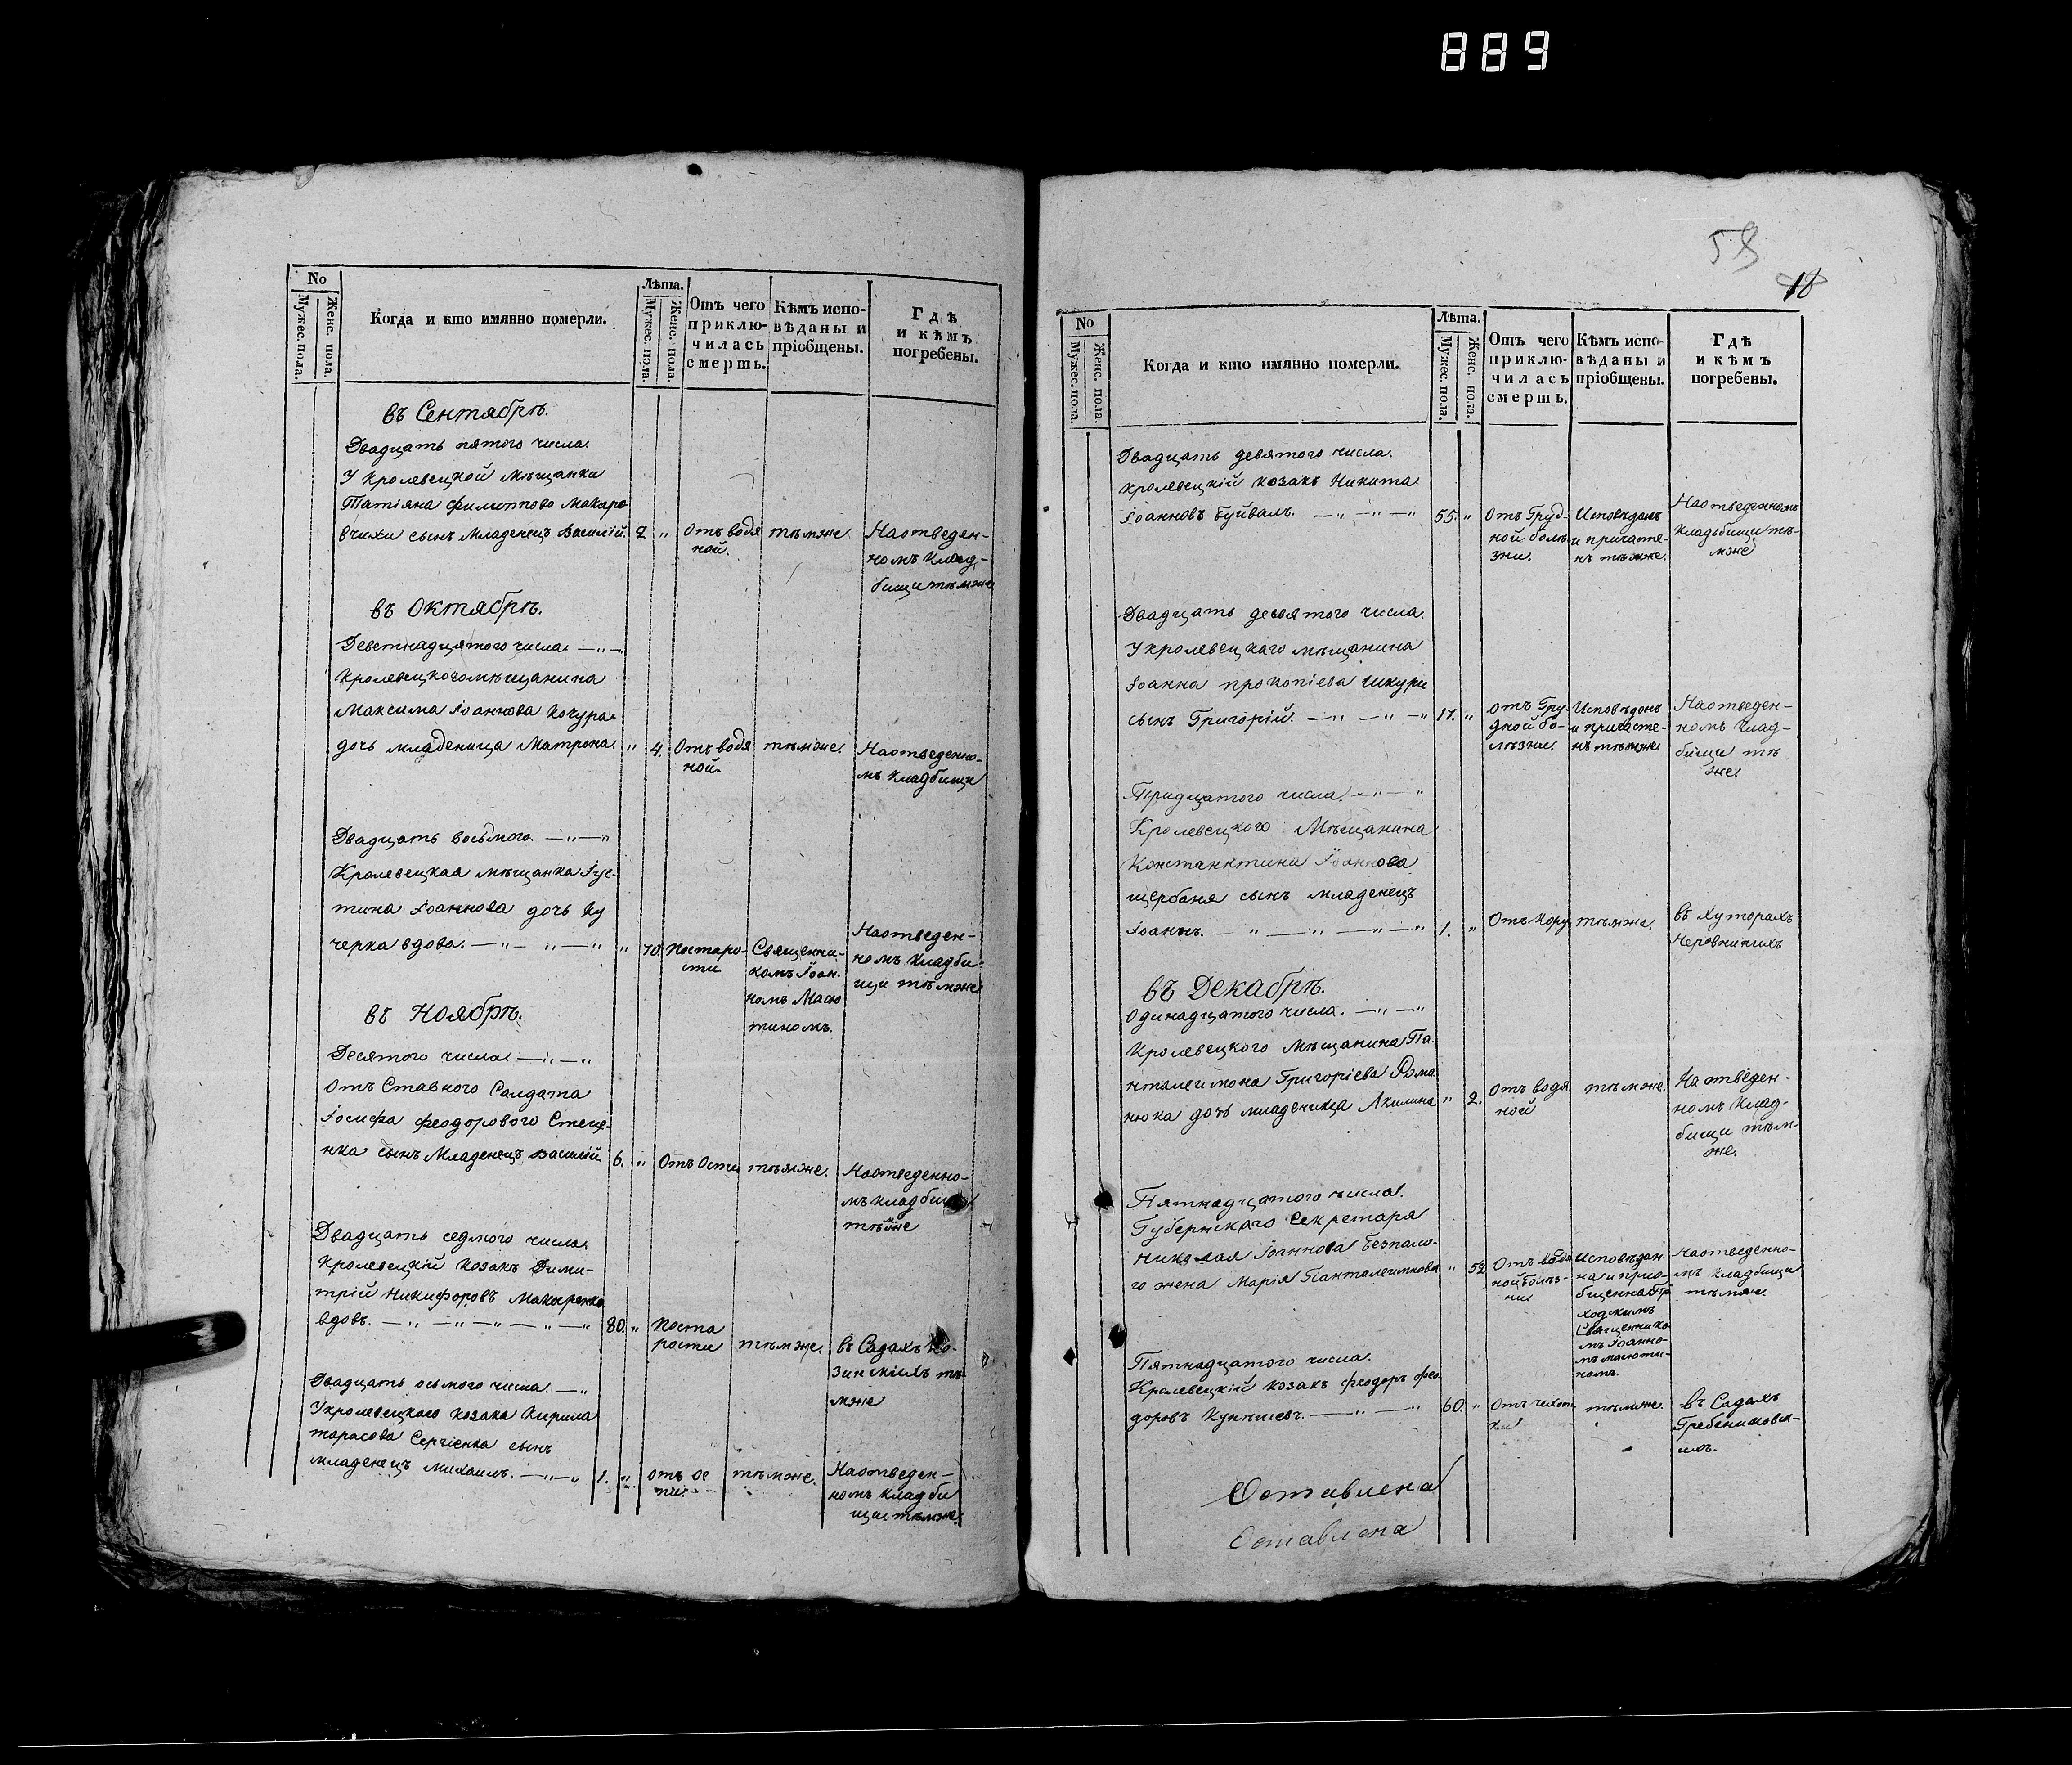 889
No
Мужес. пола.
Женс. пола.
Когда и кто имянно померли.
Лѣта.
Мужес. пола.
Женс. пола.
Отъ чего
приклю-
чилась
смерть.
Кѣмъ испо-
вѣданы и
пріобщены.
Гдѣ
и кѣмъ
погребены.
въ Сентябрѣ.
Двадцать пятого числа.
У Кролевецкой Мѣщанки
Татіяна Филиппово Макаро
вчихи сынъ Младенецъ Василій. 2 „ Отъ водя тѣмже Наотведен-
ной. номъ Клад-
бищи тѣмже
въ Октябрѣ.
Деветнадцятого числа. — „ —
Кролевецкогомѣщанина
Максима Іоаннова Кочура.
дочь младеница Матрона. „ 4. Отъ водя тѣмже. Наотведенно-
ной. мъ Кладбищи
Двадцать восьмого. — „ — „
Кролевецкая мѣщанка Іус-
тина Іоаннова дочь Ку
черка вдова. — „ — „ — „ „ 70. Постаро- Священни- Наотведен-
сти комъ Іоан. номъ Кладби-
номъ Масю щи тѣмже
тиномъ.
въ Ноябрѣ.
Десятого числа — „ — „
Отъ Ставного Салдата
Іосифа Феодорового Стеце-
нка сынъ Младенецъ Василій 6. „ Отъ Оспи тѣмже. Наотведенно-
мъ кладбищи
тѣмже
Двадцать седмого числа.
Кролевецкій Козакъ Дими-
трій Никифоровъ Макаренко
вдовъ. — „ — „ — „ — „ — „ 80. „ Поста
рости тѣмже. въ Садахъ Ко-
зинскихъ тѣ-
мже
Двадцать осьмого числа. — „
Укролевецкого козака Кирила
тарасова Сергіенка сынъ
младенецъ Михаилъ. — „ — „ 1. „ отъ ос тѣмже. Наотведен-
пи. номъ кладби
щи тѣмже.
59
18
No
Мужес. пола.
Женс. пола.
Когда и кто имянно померли.
Лѣта.
Мужес. пола.
Женс. пола.
Отъ чего
приклю-
чилась
смерть.
Кѣмъ испо-
вѣданы и
пріобщены.
Гдѣ
и кѣмъ
погребены.
Двадцать девятого числа.
кролевецкій козакъ Никита
Іоанновъ Буйвалъ. — „ — „ — „ 55. „ Отъ Груд- Исповѣданъ Наотведенномъ
ной болѣ- и причаще- Кладбищи тѣ-
зни. нъ тѣмже. мже
Двадцать девятого числа.
Укролевецкаго мѣщанина
Іоанна прокопіева Шкури
сынъ Григорій. — „ — „ — „ 17. „ отъ Гру- Исповѣданъ Наотведен-
дной бо- и причаще- номъ клад-
лѣзни. нъ тѣмже бищи тѣ
же.
Тридцатого числа. — „ — „
Кролевецкого Мѣщанина
Константина Іоаннова
щербаня сынъ младенецъ
Іоаннъ. — „ — „ — „ — „ 1. „ Отъ Кору тѣмже. въ Хуторахъ
въ Декабрѣ.
Одинадцатого числа. — „ — „
Кролевецкого Мѣщанина Па-
нталеимона Григоріева Рома
нюка дочь младеница Акилина „ 2. Отъ водя тѣмже. На отведен-
ной номъ клад-
бищи тѣм-
же.
Пятнадцатого числа.
Губернскаго Секретаря
Николая Іоаннова Безпало-
го жена Марія Панталеимнова „ 52. Отъ водя Исповѣдан- Наотведенно-
ной болѣз- на и прио- мъ кладбищи
ни бщенна при тѣмже
ходскимъ
Священнико
мъ Іоанно-
мъ масюти-
номъ.
Пятнадцатого числа.
Кралевецкій козакъ Феодоръ Фео
доровъ — „ — „ 60. „ тѣмже. въ Садахъ
Оставлена
Оставлена